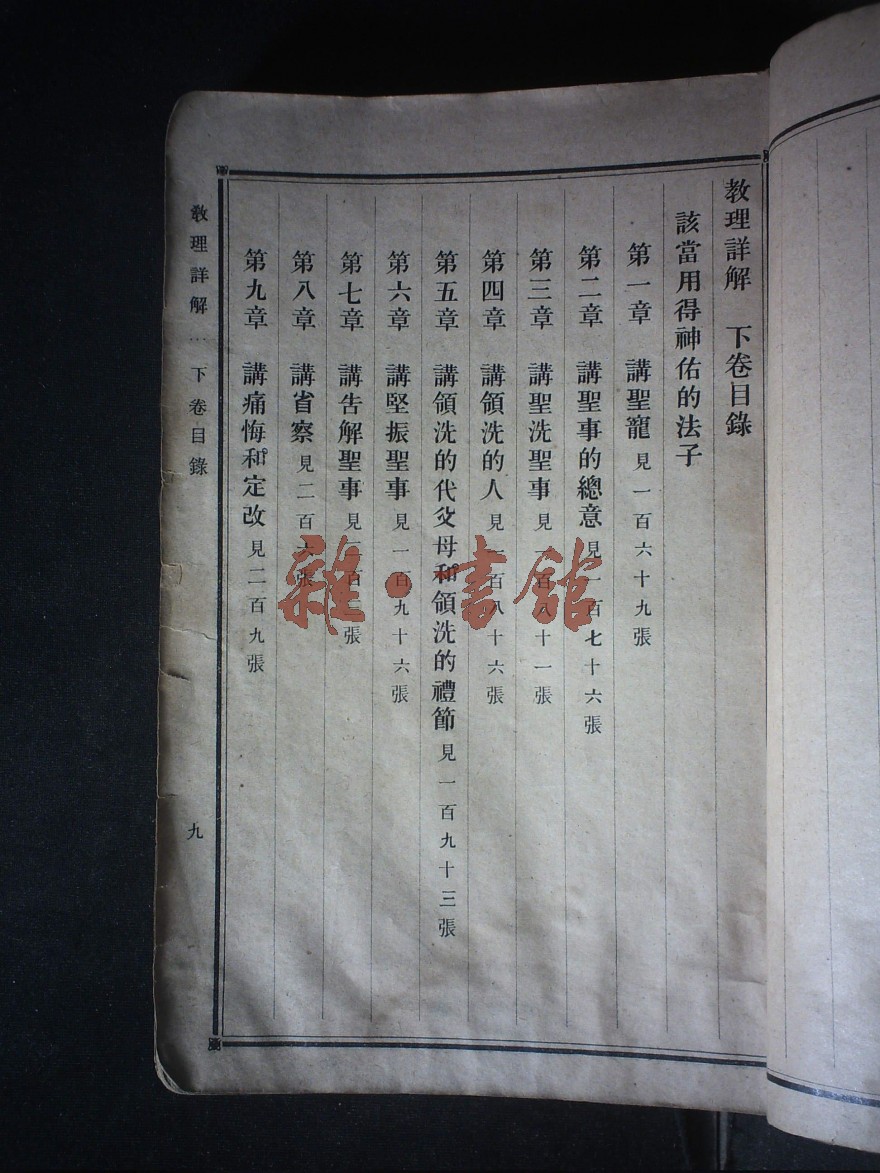 教理詳解 下卷目錄
該當用得神佑的法子
第一章 講聖寵 見一百六十九張
第二章 講聖事的總意 見一百七十六張
第三章 講聖洗聖事 見一百八十一張
第四章 講領洗的人 見一百八十六張
第五章 講領洗的代父母和領洗的禮節 見一百九十三張
第六章 講堅振聖事 見一百九十六張
第七章 講告解聖事 見二百 張
第八章 講省察 見二百六張
第九章 講痛悔和定改 見二百九張
教理詳解 … 下卷目錄
九
雜·書館